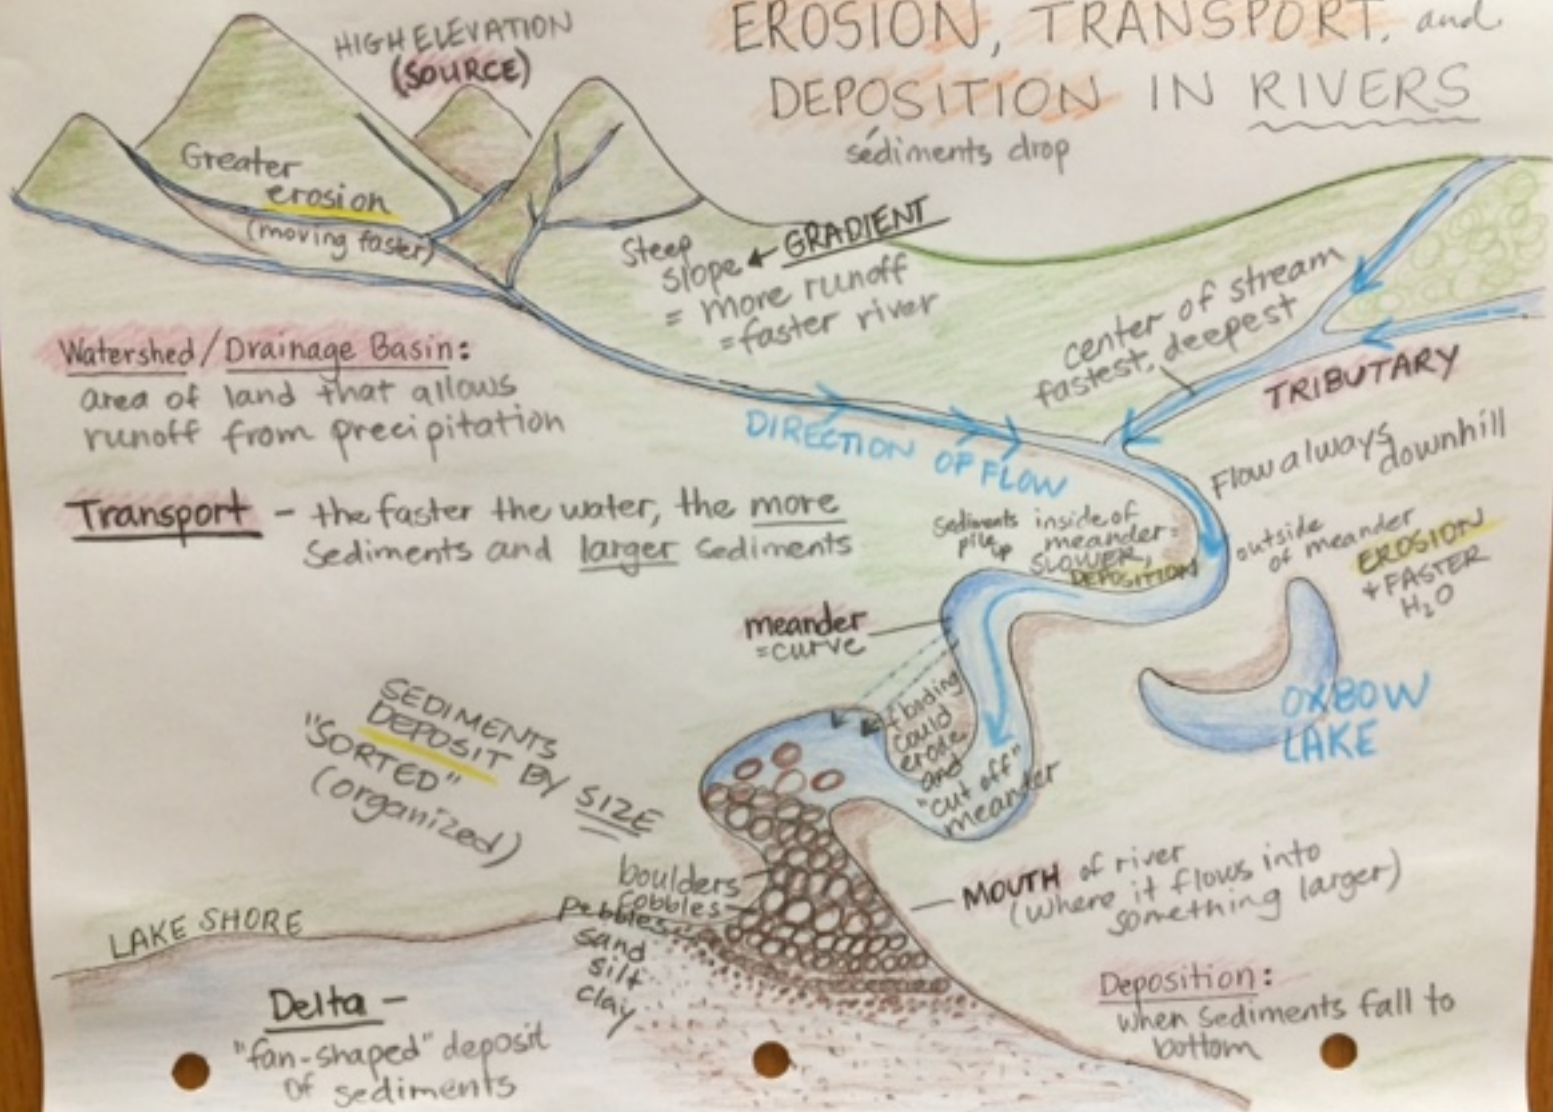 EROSION, TRANSPORT, and
DEPOSITION IN RIVERS
sediments drop
HIGH ELEVATION
(SOURCE)
Greater
erosion
(moving faster)
Steep
slope ← GRADIENT
= more runoff
= faster river
center of stream
fastest, deepest
TRIBUTARY
Watershed/Drainage Basin:
area of land that allows
runoff from precipitation
DIRECTION OF FLOW
Flow always
downhill
Transport - the faster the water, the more
sediments and larger sediments
Sediments
pile up
inside of
meander =
SLOWER,
DEPOSITION
outside
of meander
EROSION
+ FASTER
H₂O
meander
= curve
flooding
could
erode
and
"cut off"
meander
OXBOW
LAKE
SEDIMENTS
DEPOSIT BY SIZE
"SORTED"
(organized)
boulders
cobbles
pebbles
sand
silt
clay
MOUTH of river
(where it flows into
something larger)
LAKE SHORE
Delta -
"fan-shaped" deposit
of sediments
Deposition:
when sediments fall to
bottom